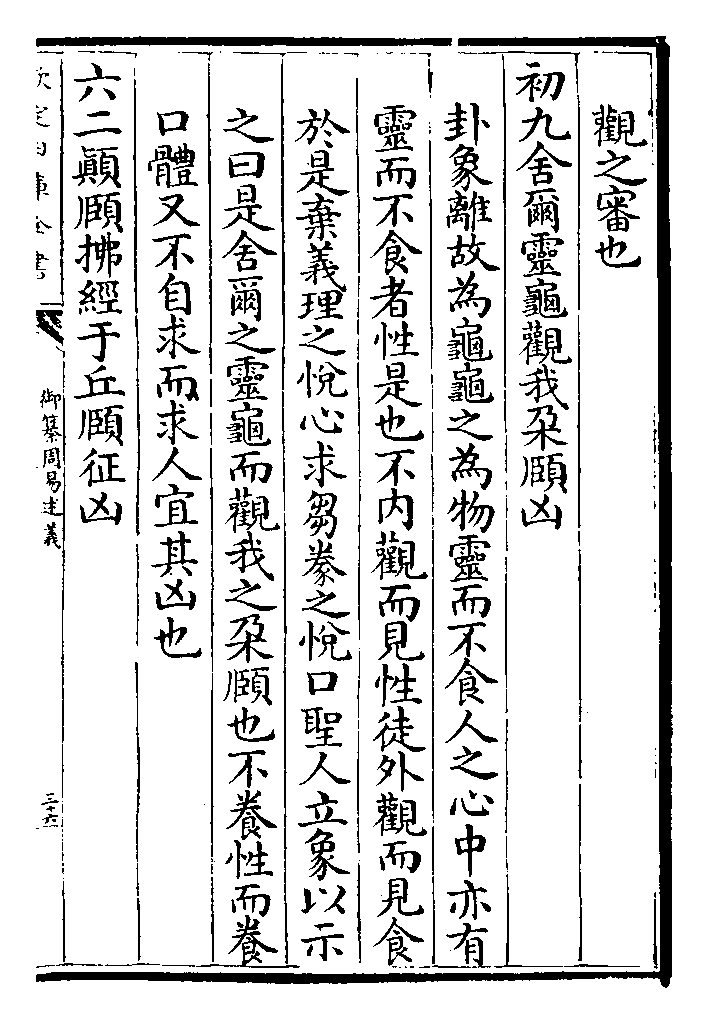 觀之審也
初九舍爾靈龜觀我朶頤凶
卦象離故為龜龜之為物靈而不食人之心中亦有
靈而不食者性是也不内觀而見性徒外觀而見食
於是棄義理之悅心求芻豢之悅口聖人立象以示
之曰是舍爾之靈龜而觀我之朶頤也不養性而養
口體又不自求而求人宜其凶也
六二顚頤拂經于丘頤征凶
欽定四庫全書
御纂周易述義
三十六